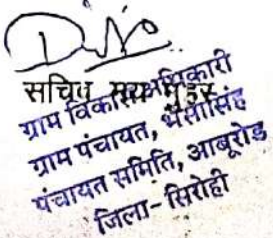 सचिव मय मुहर
ग्राम विकास अधिकारी
ग्राम पंचायत, भैसासिंह
पंचायत समिति, आबूरोड
जिला-सिरोही